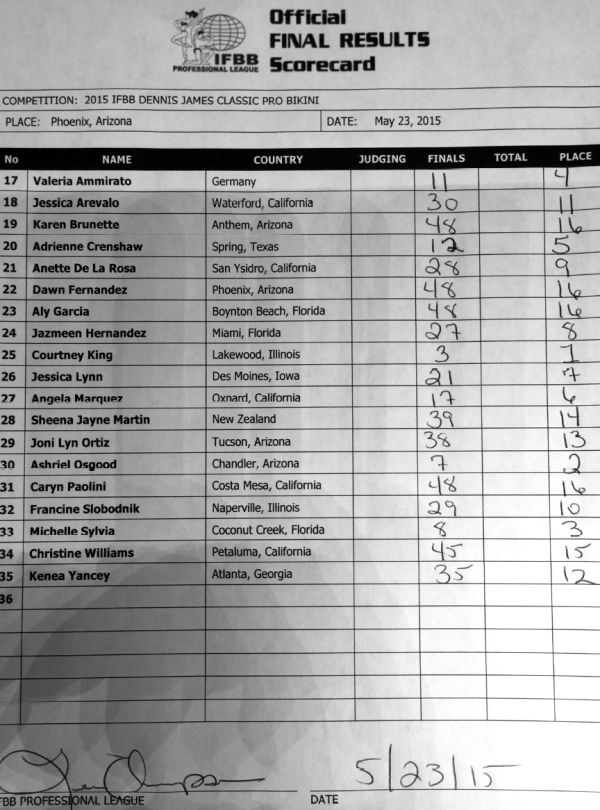 Official
FINAL RESULTS
Scorecard
IFBB
PROFESSIONAL LEAGUE
COMPETITION: 2015 IFBB DENNIS JAMES CLASSIC PRO BIKINI
PLACE: Phoenix, Arizona DATE: May 23, 2015
No NAME COUNTRY JUDGING FINALS TOTAL PLACE
17 Valeria Ammirato Germany 11 4
18 Jessica Arevalo Waterford, California 30 11
19 Karen Brunette Anthem, Arizona 48 16
20 Adrienne Crenshaw Spring, Texas 12 5
21 Anette De La Rosa San Ysidro, California 28 9
22 Dawn Fernandez Phoenix, Arizona 48 16
23 Aly Garcia Boynton Beach, Florida 48 16
24 Jazmeen Hernandez Miami, Florida 27 8
25 Courtney King Lakewood, Illinois 3 1
26 Jessica Lynn Des Moines, Iowa 21 7
27 Angela Marquez Oxnard, California 17 6
28 Sheena Jayne Martin New Zealand 39 14
29 Joni Lyn Ortiz Tucson, Arizona 38 13
30 Ashriel Osgood Chandler, Arizona 7 2
31 Caryn Paolini Costa Mesa, California 48 16
32 Francine Slobodnik Naperville, Illinois 29 10
33 Michelle Sylvia Coconut Creek, Florida 8 3
34 Christine Williams Petaluma, California 45 15
35 Kenea Yancey Atlanta, Georgia 35 12
36
5/23/15
FBB PROFESSIONAL LEAGUE DATE